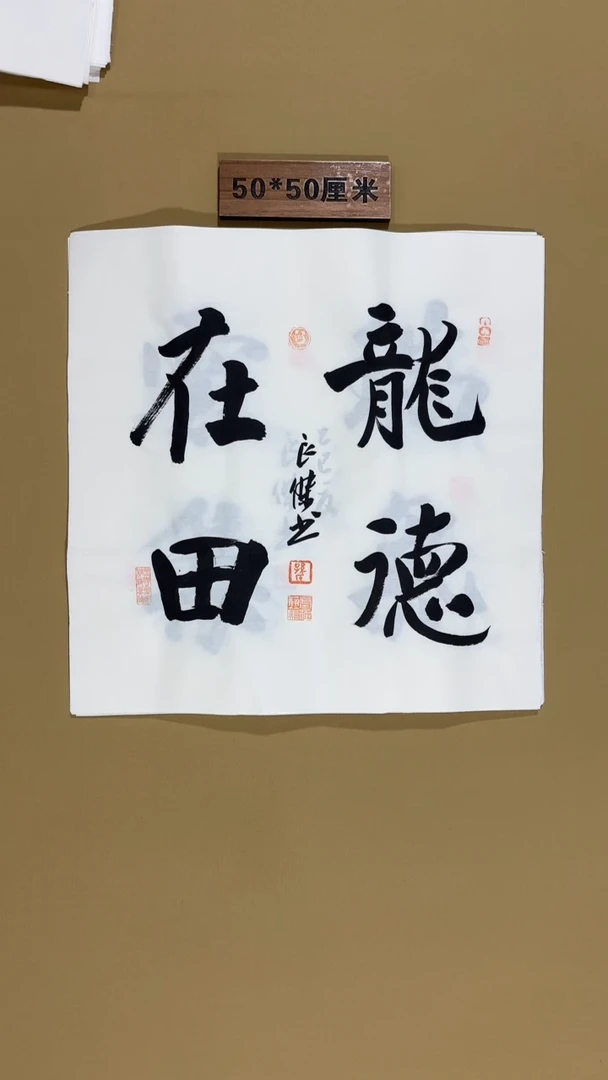 50*50厘米
龍德
在田
良傑书